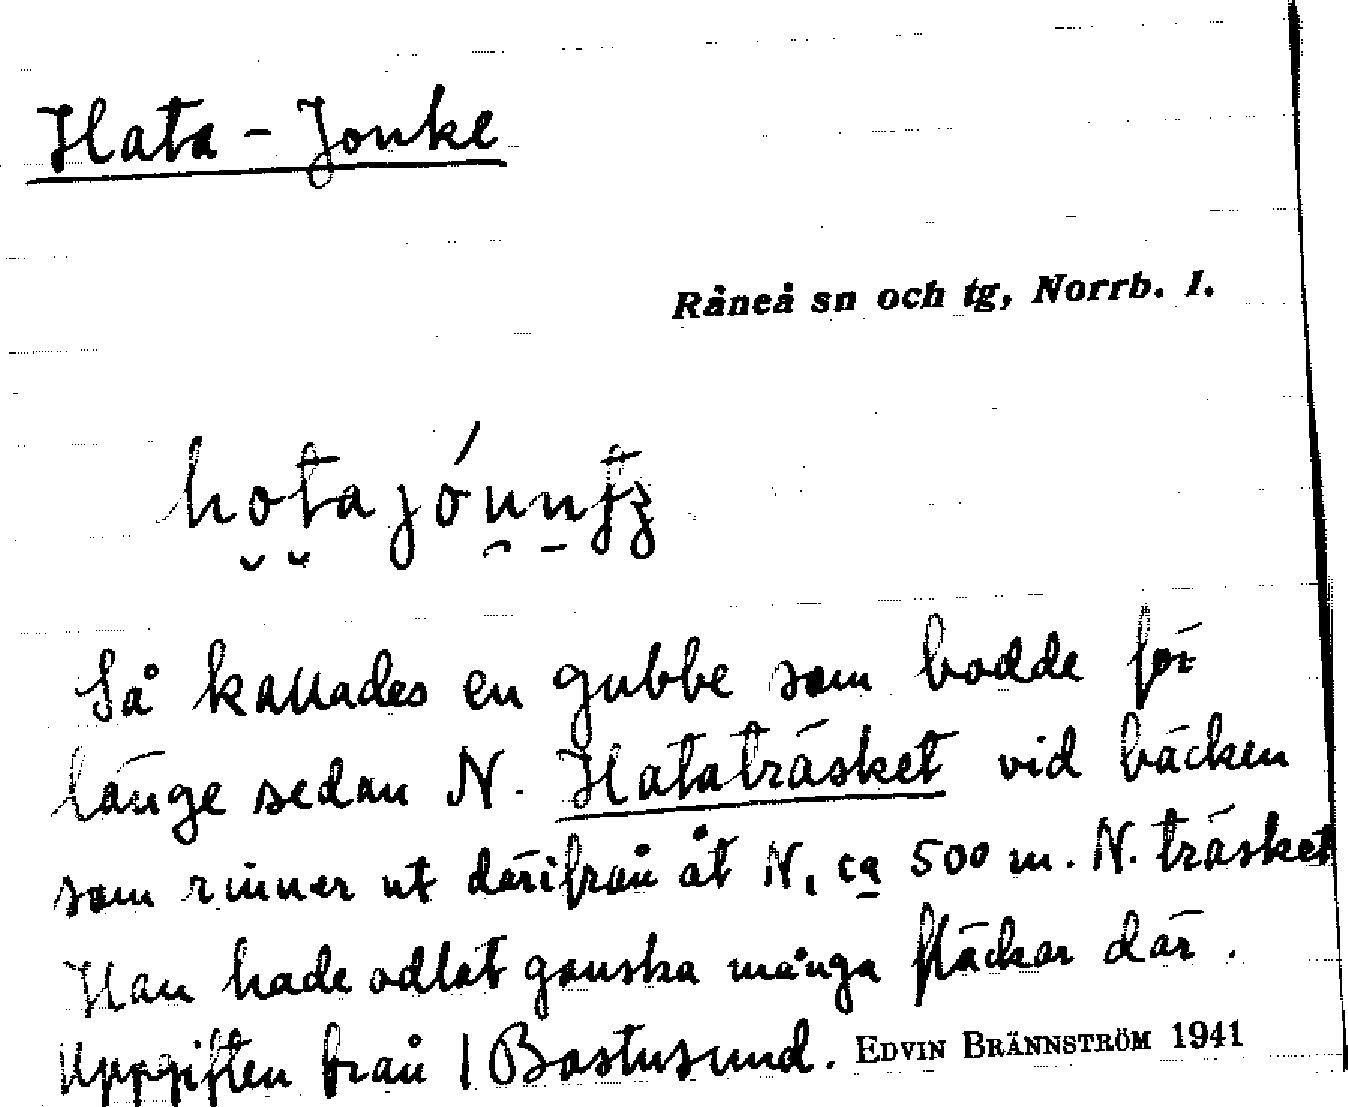 Hata-Jonke
Råneå sn och tg, Norrb. l.
Så kallades en gubbe som bodde för
länge sedan N. Hataträsket vid bäcken
som rinner ut därifrån åt N, ca 500 m. N. träsket
Han hade odlat ganska många fläckar där.
Uppgiften från 1 Bastusund. EDVIN BRÄNNSTRÖM 1941